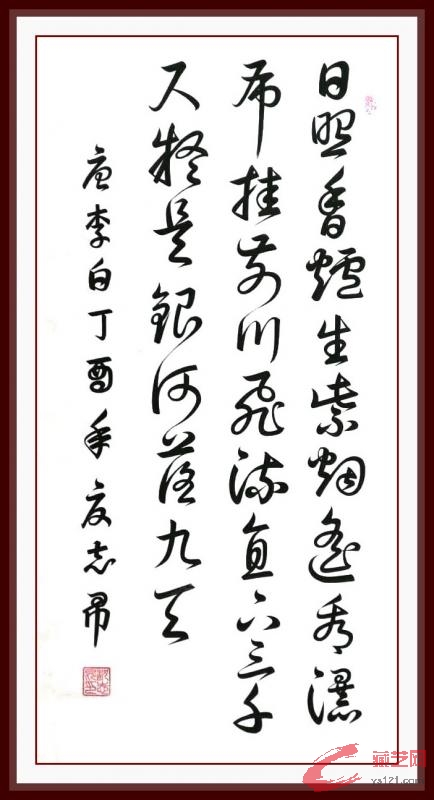 日照香爐生紫烟遙看瀑
布挂前川飛流直下三千
尺疑是銀河落九天
唐李白丁酉年志
藏艺网